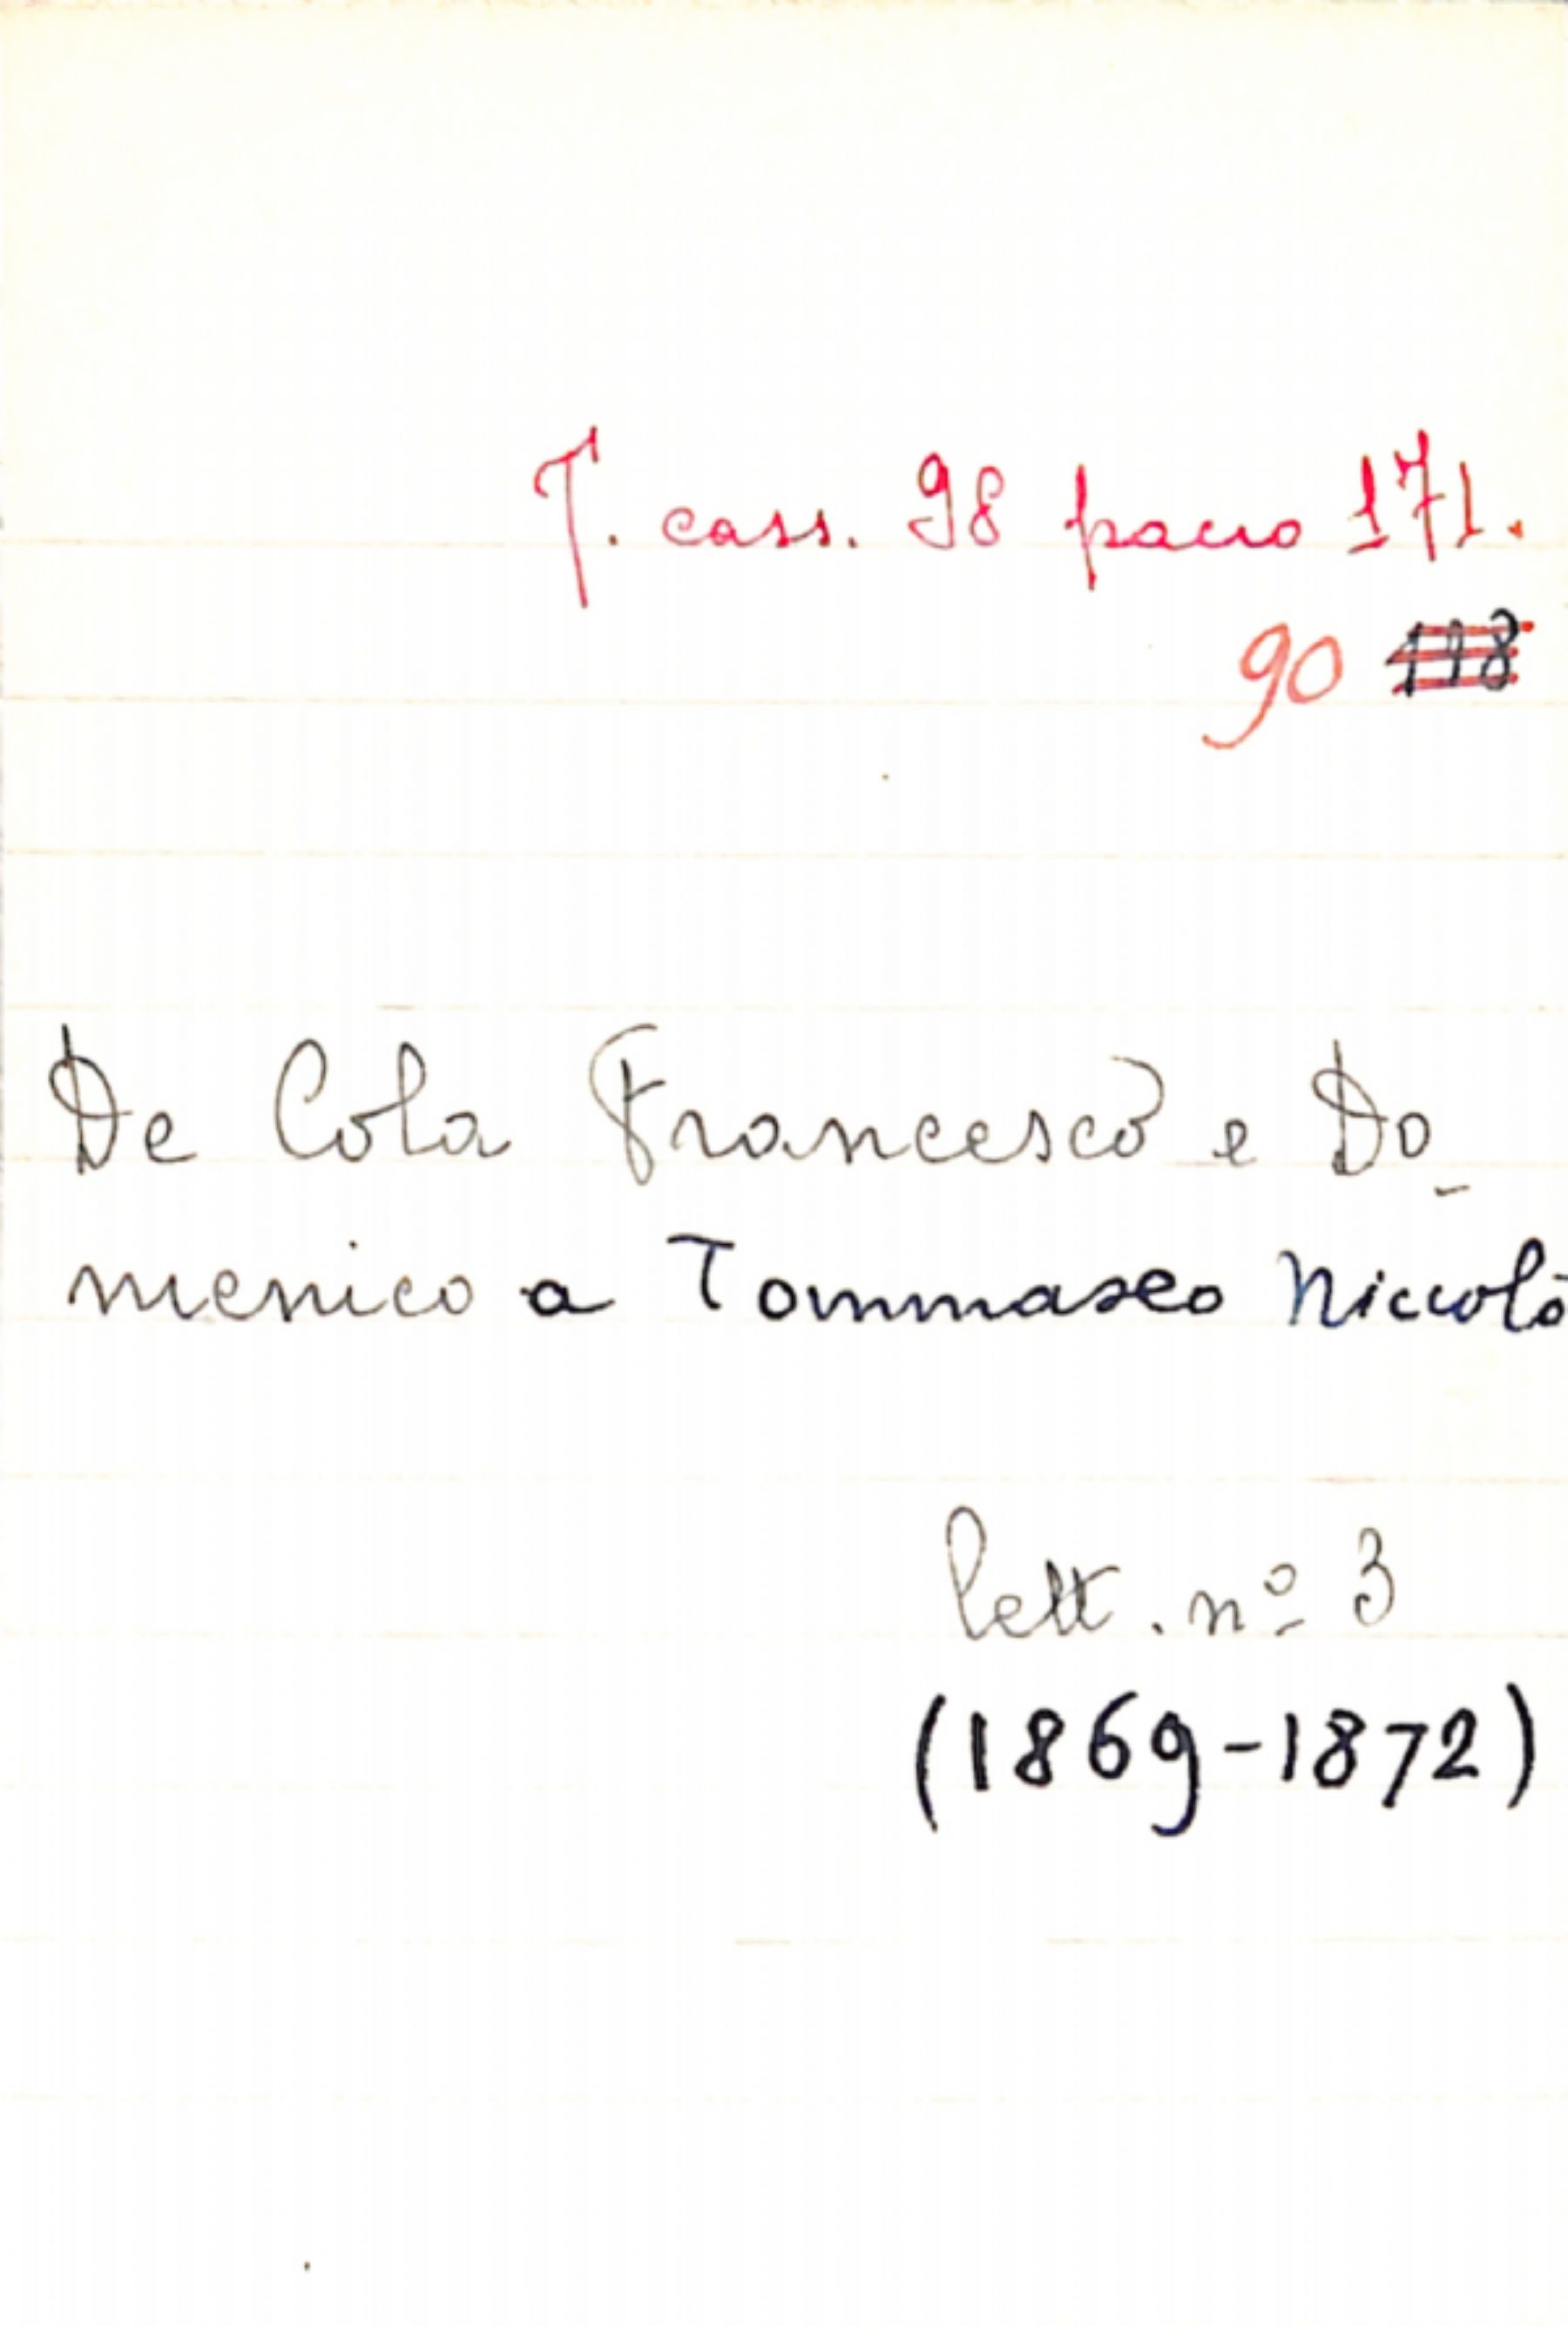 T. cass. 98 pacco 171.
90 118
De Cola Francesco e Do_
menico a Tommaseo Niccolò
lett. nº 3
(1869-1872)